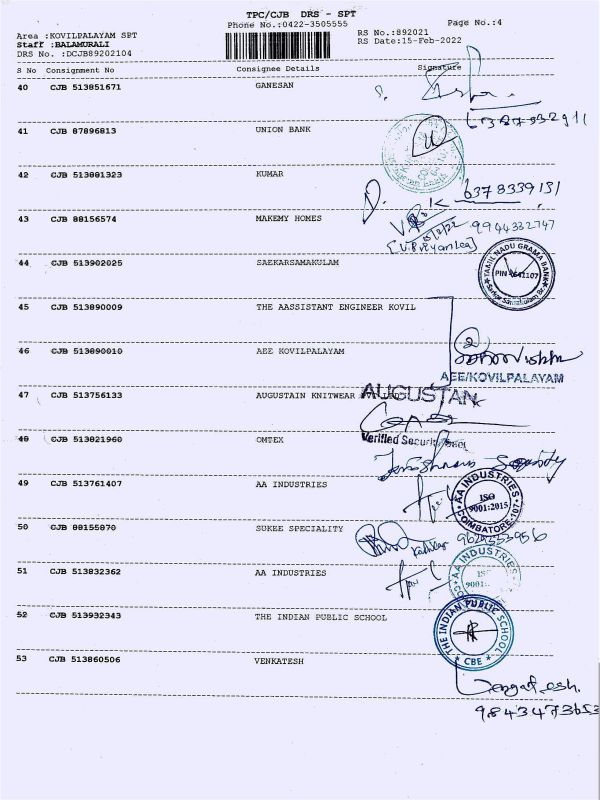 TPC/CJB DRS - SPT
Phone No.:0422-3505555
Page No.:4
Area :KOVILPALAYAM SPT
Staff :BALAMURALI
DRS No. :DCJB89202104
RS No.:892021
RS Date:15-Feb-2022
S No Consignment No Consignee Details Signature
40 CJB 513851671 GANESAN
41 CJB 87896813 UNION BANK
42 CJB 513881323 KUMAR
6378339131
43 CJB 88156574 MAKEMY HOMES
9944332747
44 CJB 513902025 SAEKARSAMAKULAM
TAMIL NADU GRAMA BANK
PIN - 641107
45 CJB 513890009 THE AASSISTANT ENGINEER KOVIL
46 CJB 513890010 AEE KOVILPALAYAM
AEE/KOVILPALAYAM
47 CJB 513756133 AUGUSTAIN KNITWEAR PVT LTD
AUGUSTAN
Verified Security Seal
48 CJB 513821960 OMTEX
49 CJB 513761407 AA INDUSTRIES
AA INDUSTRIES
ISO
9001:2015
COIMBATORE-107
50 CJB 88155870 SUKEE SPECIALITY
51 CJB 513832362 AA INDUSTRIES
AA INDUSTRIES
52 CJB 513932343 THE INDIAN PUBLIC SCHOOL
THE INDIAN PUBLIC SCHOOL
CBE
53 CJB 513860506 VENKATESH
9843473653